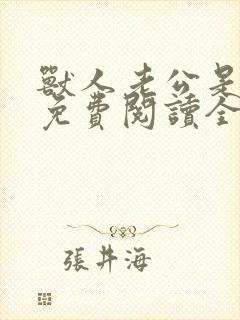 獸人老公是
免費閱讀全
張井海